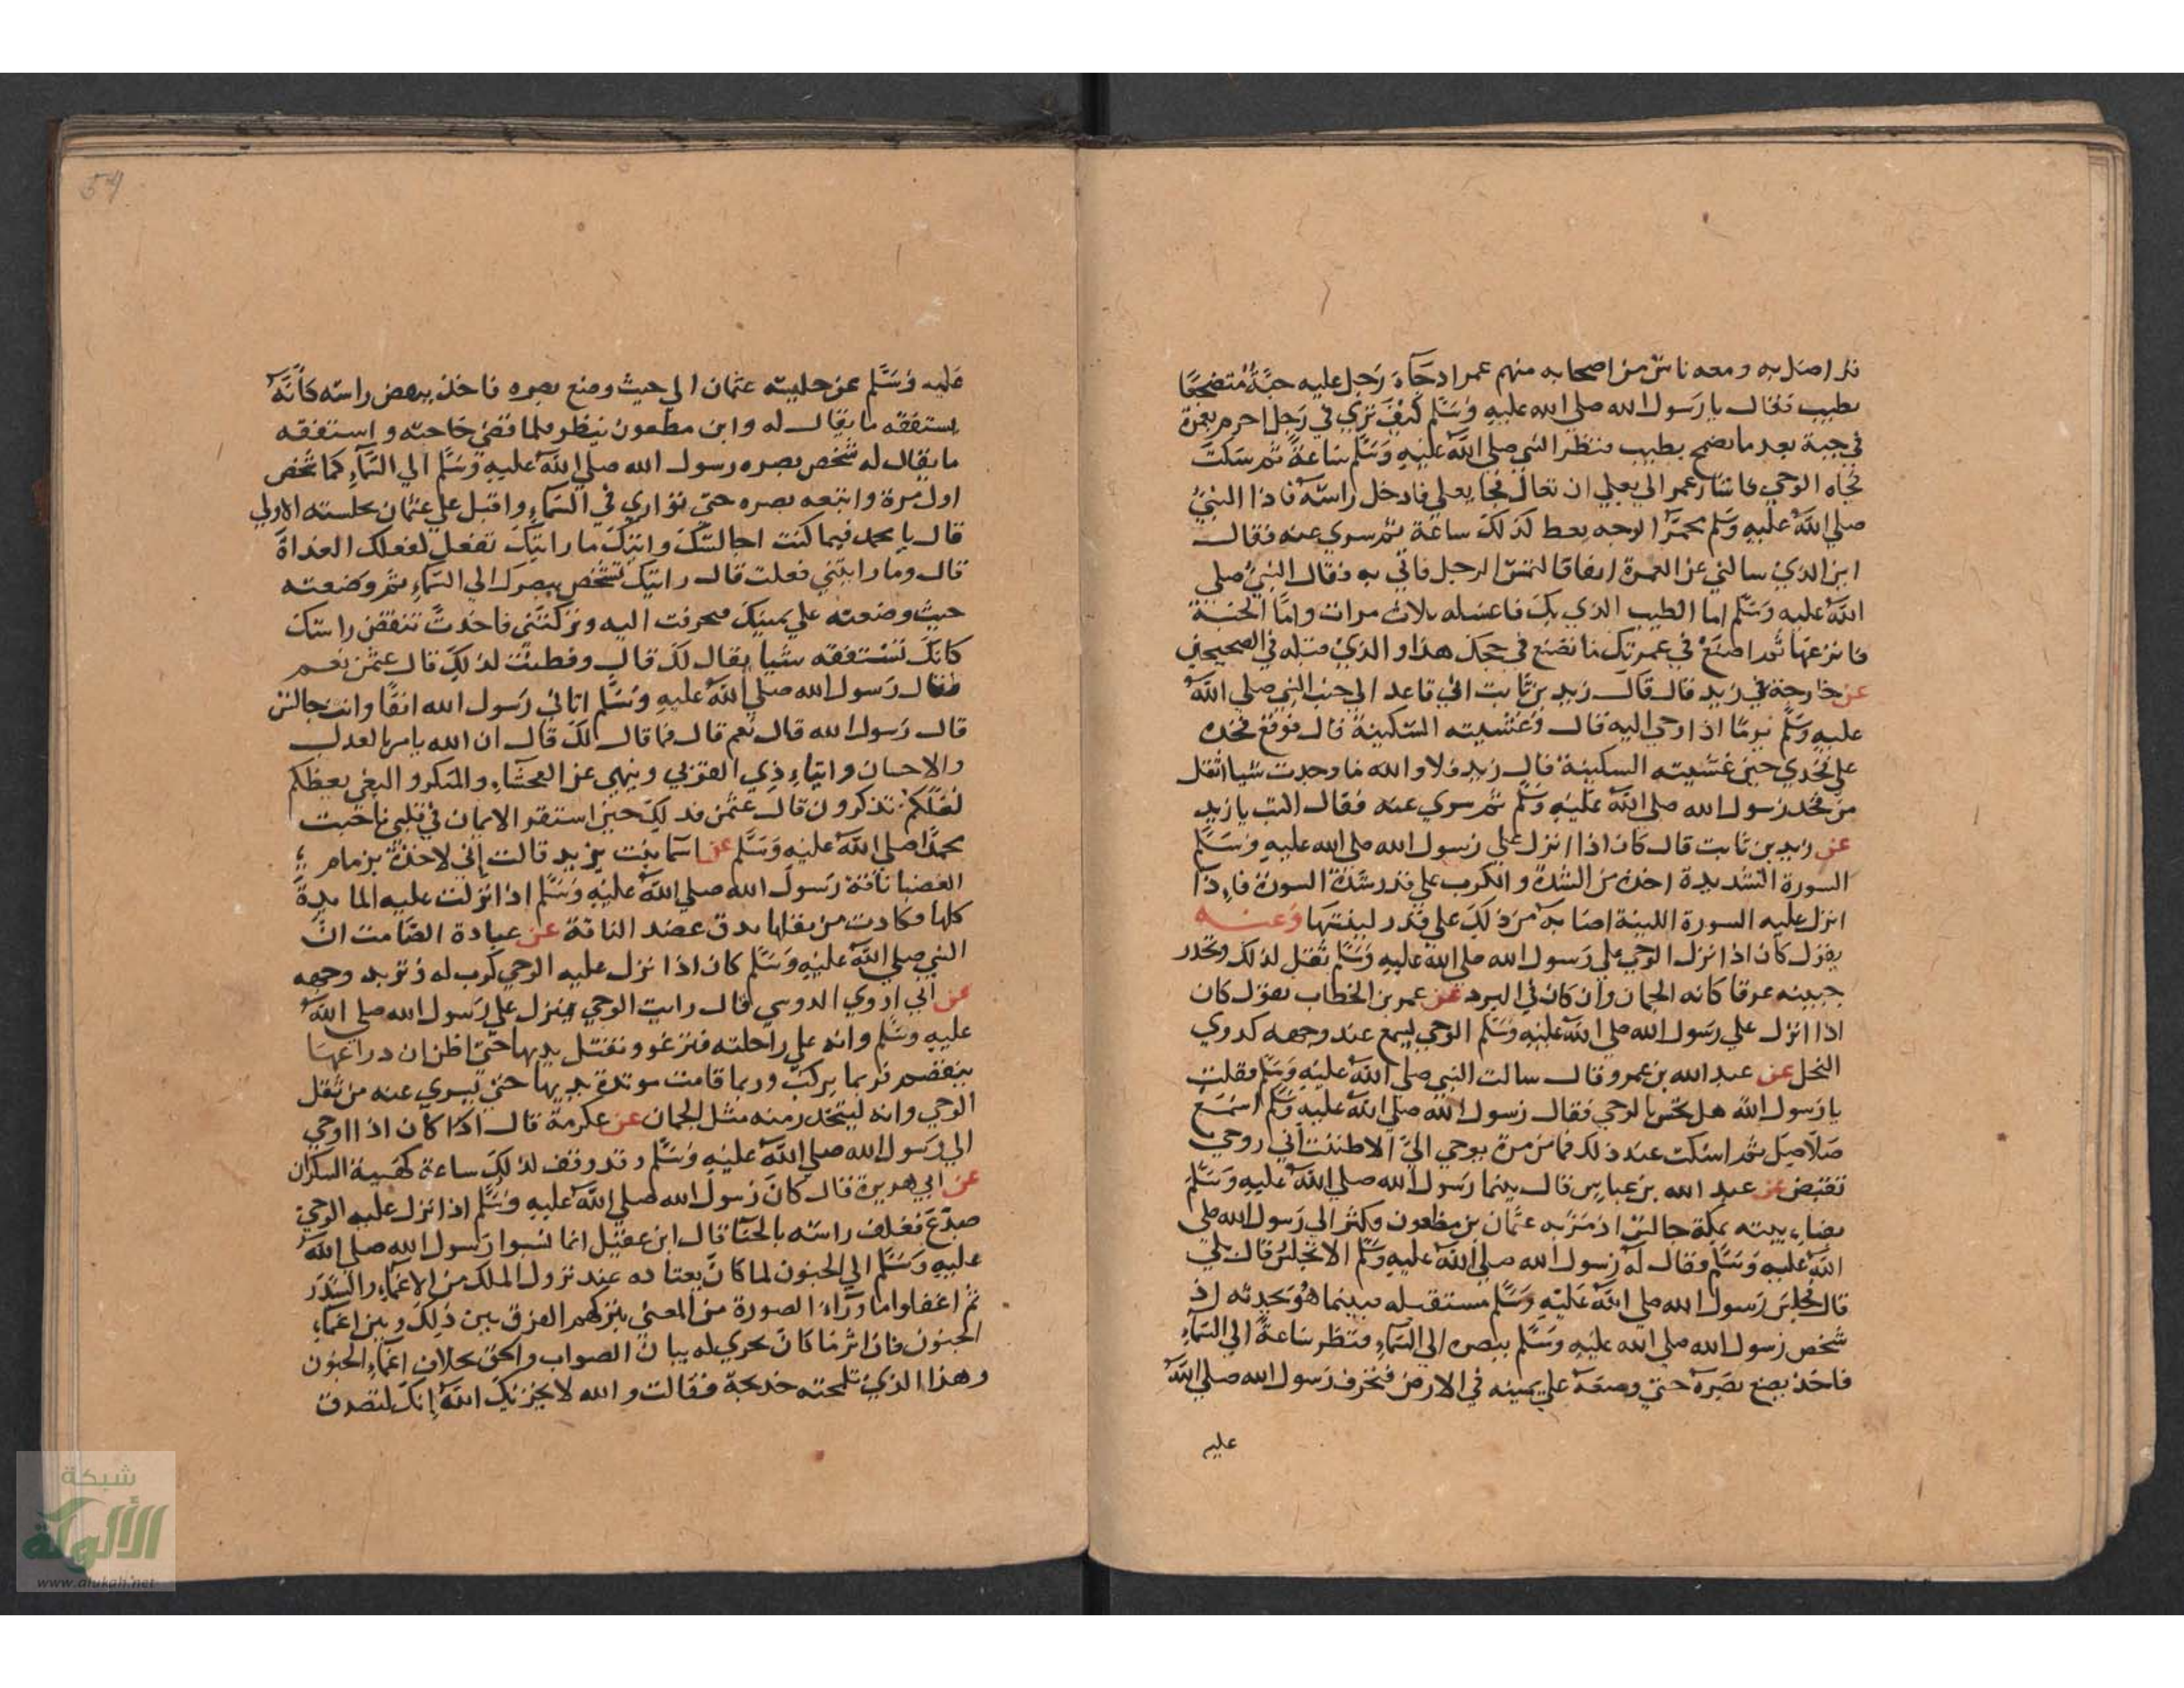 قد اظل به ومعه ناس من اصحابه منهم عمر اذ جاءه رجل عليه جبة متضمخا
بطيب فقال يا رسول الله صلى الله عليه وسلم كيف ترى في رجل احرم بعمرة
في جبة بعد ما تضمخ بطيب فنظر النبي صلى الله عليه وسلم ساعة ثم سكت
فجاه الوحي فاشار عمر الي يعلي ان تعال فجا يعلي فادخل راسه فاذا النبي
صلى الله عليه وسلم محمر الوجه يغط لذلك ساعة ثم سري عنه فقال
اين الذي سالني عن العمرة انفا فالتمس الرجل فاتي به فقال النبي صلي
الله عليه وسلم اما الطيب الذي بك فاغسله ثلاث مرات واما الجبة
فانزعها ثم اصنع في عمرتك ما تصنع في حجك هذا والذي قبله في الصحيحين
عن خارجة بن زيد قال قال زيد بن ثابت اني قاعد الي جنب النبي صلي الله
عليه وسلم يوما اذا وحي اليه قال وغشيته السكينة قال فوقع فخذه
علي فخذي حين غشيته السكينة قال زيد فلا والله ما وجدت شيا اثقل
من فخذ رسول الله صلى الله عليه وسلم ثم سري عنه فقال اكتب يا زيد
عن زيد بن ثابت قال كان اذا انزل علي رسول الله صلى الله عليه وسلم
السورة الشديدة اخذه من الشدة والكرب علي قدر شدة السورة فاذا
انزل عليه السورة اللينة اصابه من ذلك علي قدر لينتها وعنه
يقول كان اذا نزل الوحي علي رسول الله صلى الله عليه وسلم ثقل لذلك وتحدر
جبينه عرقا كانه الجمان وان كان في البرد عن عمر بن الخطاب يقول كان
اذا انزل علي رسول الله صلى الله عليه وسلم الوحي يسمع عند وجهه كدوي
النحل عن عبد الله بن عمرو قال سالت النبي صلى الله عليه وسلم فقلت
يا رسول الله هل تحس بالوحي فقال رسول الله صلى الله عليه وسلم اسمع
صلاصل ثم اسكت عند ذلك فما من مرة يوحي الي الا ظننت اني روحي
تقبض عن عبد الله بن عباس قال بينما رسول الله صلى الله عليه وسلم
بفناء بيته بمكة جالس اذ مر به عثمان بن مظعون فكشر الي رسول الله صلي
الله عليه وسلم فقال له رسول الله صلى الله عليه وسلم الا تجلس قال بلي
قال فجلس رسول الله صلى الله عليه وسلم مستقبله فبينما هو يحدثه اذ
شخص رسول الله صلى الله عليه وسلم ببصره الي السماء فنظر ساعة الي السماء
فاخذ يضع بصره حتي وضعه علي يمينه في الارض فتحرف رسول الله صلي الله
عليه
54
عليه وسلم عن جليسه عثمان الي حيث وضع بصره فاخذ ينغض راسه كانه
يستفقه ما يقال له وابن مظعون ينظر فلما قضي حاجته واستفقه
ما يقال له شخص بصره رسول الله صلي الله عليه وسلم الي السماء كما شخص
اول مرة واتبعه بصره حتي تواري في السماء واقبل علي عثمان بجلسته الاولي
قال يا محمد فيما كنت اجالسك واتيك ما رايتك تفعل لفعلك الغداة
قال وما رايتني فعلت قال رايتك تشخص ببصرك الي السماء ثم وضعته
حيث وضعته علي يمينك فتحرفت اليه وتركتني فاخذت تنغض راسك
كانك تستفقه شيا يقال لك قال وفطنت لذلك قال عثمن نعم
فقال رسول الله صلي الله عليه وسلم اتاني رسول الله انفا وانت جالس
قال رسول الله قال نعم قال فما قال لك قال ان الله يامر بالعدل
والاحسان وايتاء ذي القربي وينهي عن الفحشاء والمنكر والبغي يعظكم
لعلكم تذكرون قال عثمن فذلك حين استقر الايمان في قلبي فاحببت
محمدا صلي الله عليه وسلم عن اسما بنت يزيد قالت اني لاخذة بزمام
العضبا ناقة رسول الله صلي الله عليه وسلم اذ انزلت عليه المايدة
كلها فكادت من ثقلها يدق عضد الناقة عن عبادة الصامت ان
النبي صلي الله عليه وسلم كان اذا نزل عليه الوحي كرب له وتربد وجهه
عن ابي اروي الدوسي قال رايت الوحي ينزل علي رسول الله صلي الله
عليه وسلم وانه علي راحلته فترغو وتفتل يديها حتي اظن ان دراعها
ينفصم فربما بركت وربما قامت موتدة يديها حتي يسري عنه من ثقل
الوحي وانه ليتحدر منه مثل الجمان عن عكرمة قال اذا كان اذا اوحي
الي رسول الله صلي الله عليه وسلم وقد وقف لذلك ساعة كهيية السكران
عن ابي هريرة قال كان رسول الله صلي الله عليه وسلم اذا نزل عليه الوحي
صدع فغلف راسه بالحنا قال ابن عقيل انما نسبوا رسول الله صلي الله
عليه وسلم الي الجنون لما كان يعتاده عند نزول الملك من الاغماء والسدر
ثم اغفلوا ما وراء الصورة من المعني بتركهم الفرق بين ذلك وبين اغماء
الجنون فان اثر ما كان يجري له بيان الصواب والحق بخلاف اغماء الجنون
وهذا الذي تلمحته خديجة فقالت والله لا يخزيك الله انك لتصدق
شبكة
الألوكة
www.alukah.net